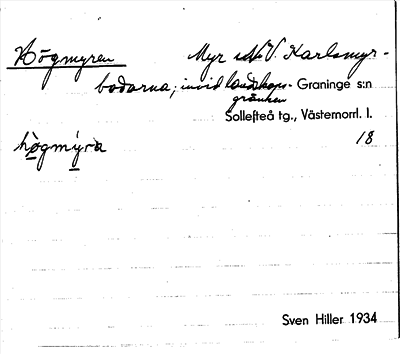 Högmyren Myr N.V. Karlsmyr-
bodarna; invid landskaps- Graninge s:n
gränsen
Sollefteå tg., Västernorrl. l.
högmýra 18
Sven Hiller 1934